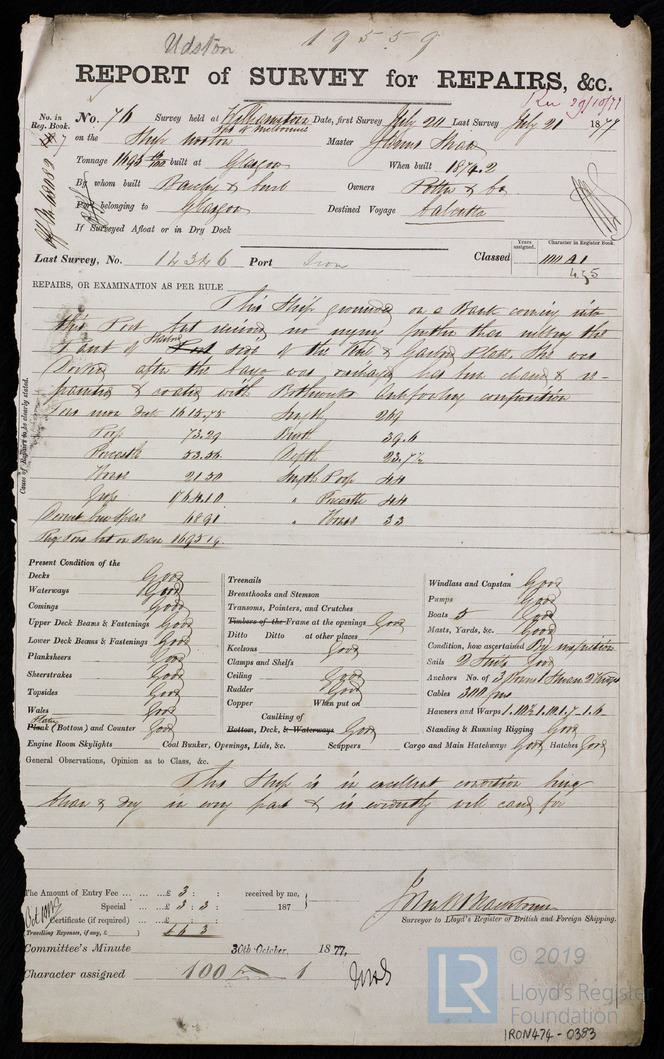 Udston 19559
REPORT of SURVEY for REPAIRS, &c.
Rec 29/10/77
No. in Reg. Book.
No. 76 Survey held at Williamstown Date, first Survey July 20 Last Survey July 21 1877
Port of Melbourne
on the Ship Udston Master James Shaw
Tonnage 1695 built at Glasgow When built 1874.2
By whom built Barclay & Curle Owners Potter & Co
Port belonging to Glasgow Destined Voyage Calcutta
If Surveyed Afloat or in Dry Dock
Last Survey, No. 12346 Port Iron Classed
Years assigned.
Character in Register Book.
100 A 1
4,75
REPAIRS, OR EXAMINATION AS PER RULE
This Ship grounded on a Bank coming into
this Port but received no injury further than rubbing the
Paint of Starbd Port side of the Keel & Garbd Plate. She was
Docked after the Cargo was discharged has been cleaned & re-
painted & coated with composition
Cause of Repairs to be clearly stated.
Tons under Deck 1615.75 Length 269
Poop 73.29 Breadth 39.6
Forecastle 53.56 Depth 23.7½
House 21.50 Length Poop 44
Gross 1764.10 " Forecastle 44
Deduct Crew Space 68.91 " House 33
Reg Tons cut on Beam 1695.19
Present Condition of the
Decks Good
Waterways Good
Comings Good
Upper Deck Beams & Fastenings Good
Lower Deck Beams & Fastenings Good
Planksheers Good
Sheerstrakes Good
Topsides Good
Wales Good
Plating
Plank (Bottom) and Counter Good
Engine Room Skylights Coal Bunker, Openings, Lids, &c. Scuppers Cargo and Main Hatchways Good Hatches Good
Treenails
Breasthooks and Stemson
Transoms, Pointers, and Crutches
Timbers of the Frame at the openings Good
Ditto Ditto at other places
Keelsons Good
Clamps and Shelfs
Ceiling Good
Rudder Good
Copper When put on
Caulking of
Bottom, Deck, & Waterways Good
Windlass and Capstan Good
Pumps Good
Boats 5 Good
Masts, Yards, &c. Good
Condition, how ascertained By inspection
Sails 2 Suits Good
Anchors No. of 3 Bower 1 Stream 2 Kedges
Cables 300 fms
Hawsers and Warps
Standing & Running Rigging Good
General Observations, Opinion as to Class, &c.
This Ship is in excellent condition being
clean & dry in every part & is evidently well cared for
The Amount of Entry Fee £ 3 : : received by me,
Special £ 3 : 3 : 187
Certificate (if required) £ : :
Travelling Expenses, if any, £ £ 6 3
Surveyor to Lloyd's Register of British and Foreign Shipping.
Committee's Minute 30th October, 1877.
Character assigned 100 A 1
© 2019
LR
Lloyd's Register
Foundation
IRON474-0383